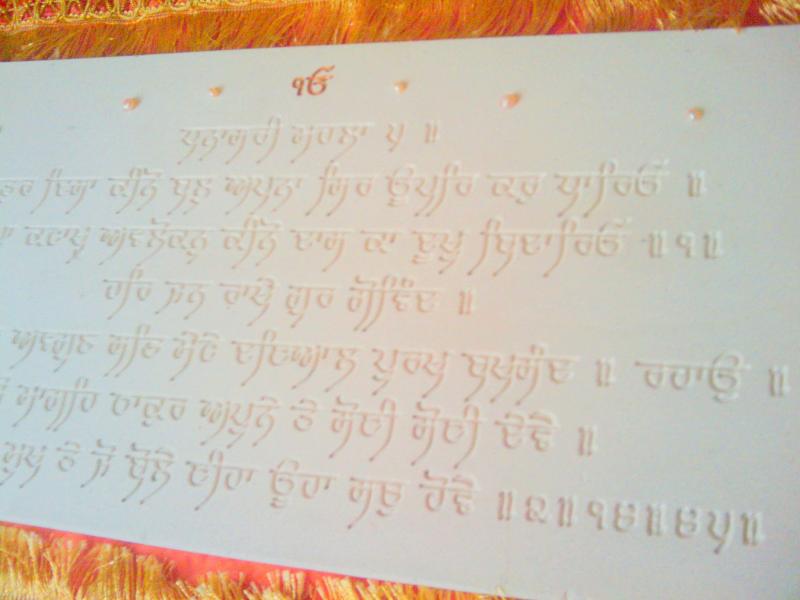 ੴ
ਧਨਾਸਰੀ ਮਹਲਾ ੫ ॥
ਦਿਸਾ ਕੀਨੋ ਬਲੁ ਅਪਨਾ ਸਿਰ ਊਪਰਿ ਕਰੁ ਧਾਰਿਓ ॥
ਕਟਾਖੵ ਅਵਲੋਕਨੁ ਕੀਨੋ ਦਾਸ ਕਾ ਦੂਖੁ ਬਿਦਾਰਿਓ ॥੧॥
ਹਰਿ ਜਨ ਰਾਖੇ ਗੁਰ ਗੋਵਿੰਦ ॥
ਅਵਗੁਣ ਸਭਿ ਮੇਟੇ ਦਇਆਲ ਪੁਰਖ ਬਖਸੰਦ ॥ ਰਹਾਉ ॥
ਮਾਗਹਿ ਠਾਕੁਰ ਅਪੁਨੇ ਤੇ ਸੋਈ ਸੋਈ ਦੇਵੈ ॥
ਮੁਖ ਤੇ ਜੋ ਬੋਲੈ ਈਹਾ ਊਹਾ ਸਚੁ ਹੋਵੈ ॥੨॥੧੪॥੪੫॥